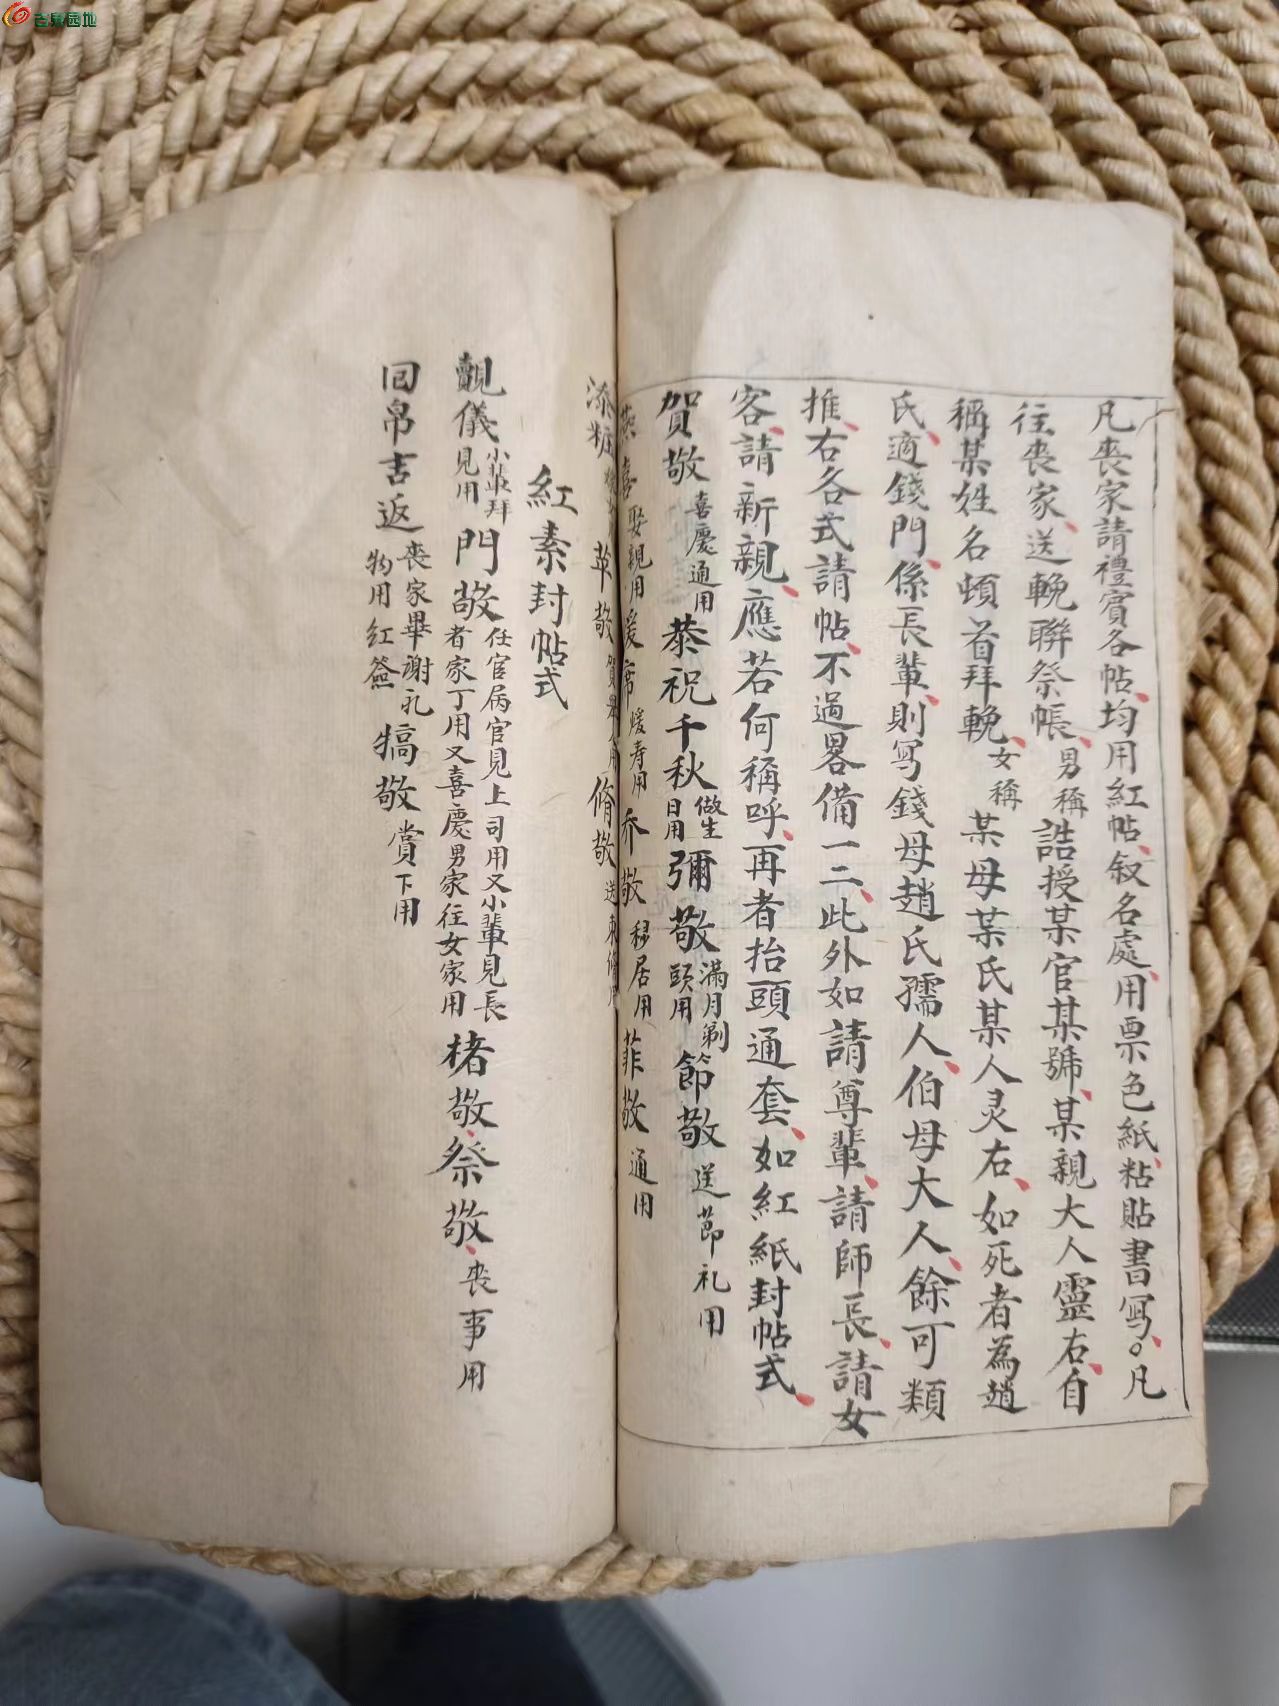 古泉园地
凡喪家請禮賓各帖、均用紅帖、叙名處、用票色紙、粘貼書寫、○凡
往喪家、送輓聯祭帳、男稱誥授某官某號、某親大人靈右、自
稱某姓名頓首拜輓、女稱某母某氏某人灵右、如死者為趙
氏、適錢門、係長輩、則写錢母趙氏孺人、伯母大人、餘可類
推、右各式請帖、不過畧備一二、此外如請尊輩、請師長、請女
客、請新親、應若何稱呼、再者抬頭通套、如紅紙封帖式、
賀敬 喜慶通用 恭祝千秋 做生日用 彌敬 滿月剃頭用 節敬 送節礼用
燕喜 娶親用 煖席 煖寿用 喬敬 移居用 菲敬 通用
添粧 苹敬 脩敬
紅素封帖式
覿儀 小輩拜見用 門敬 任官屬官見上司用又小輩見長者家丁用又喜慶男家往女家用 楮敬、祭敬、喪事用
回帛吉返 喪家畢謝礼物用红簽 犒敬 賞下用